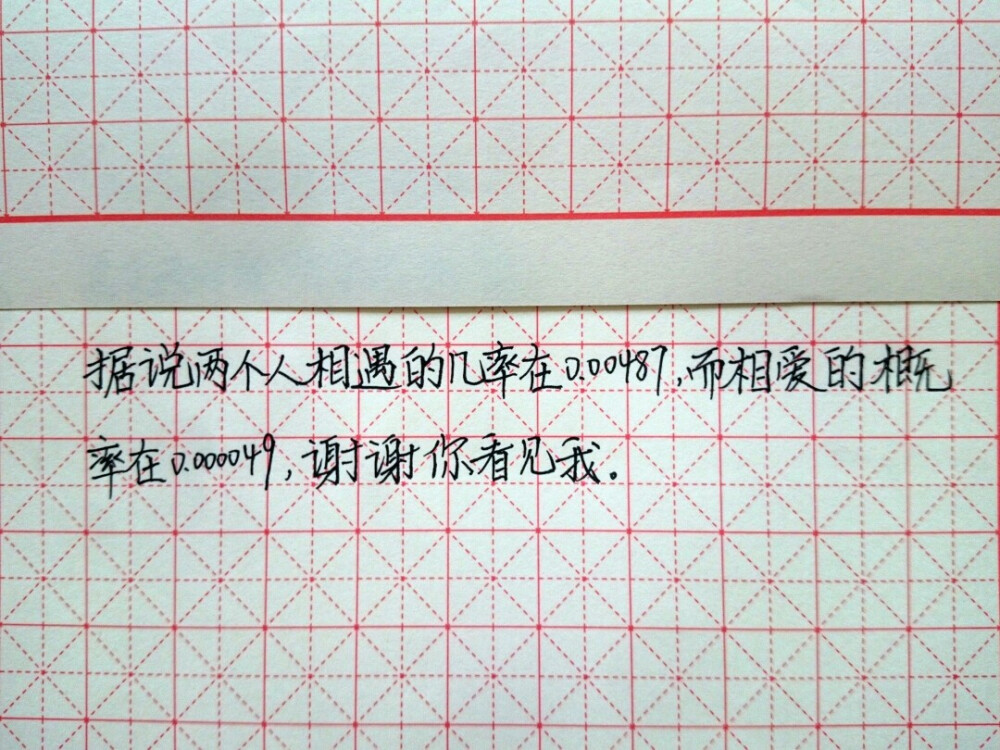 据说两个人相遇的几率在0.00487,而相爱的概
率在0.000049,谢谢你看见我。